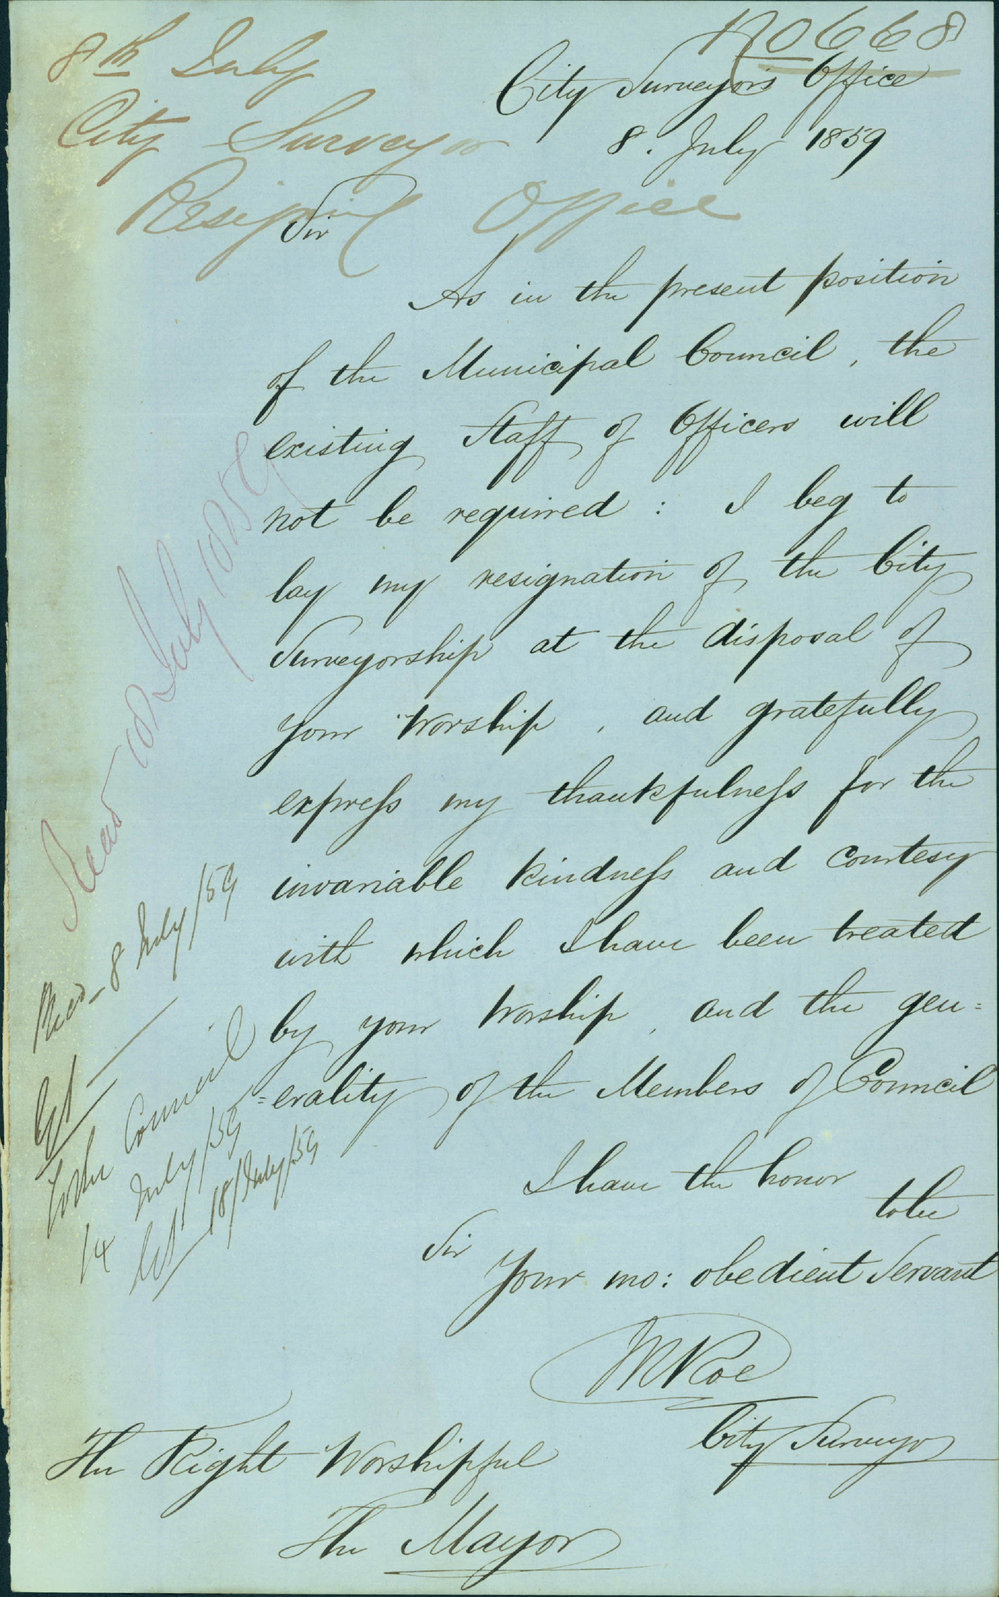 No 668
8th July
City Surveyor
Resigning Office
City Surveyor's Office
8. July 1859
Sir
As in the present position
of the Municipal Council, the
existing Staff of Officers will
not be required: I beg to
lay my resignation of the City
Surveyorship at the disposal of
your Worship, and gratefully
express my thankfulness for the
invariable kindness and courtesy
with which I have been treated
by your Worship, and the gen=
=erality of the Members of Council
I have the honor
to be
Sir
Your mo: obedient Servant
Roe
City Surveyor
The Right Worshipful
The Mayor
Read 18 July 1859
Recd - 8 July/59
Council
14 July/59
18/July/59